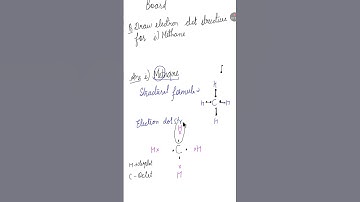 Board
Q. Draw electron dot structure
for a) Methane
Ans a) Methane
Structural formula
H
H C H
H
Electron dot str
H
H x C x H
x
H
H → Duplet
C → Octet